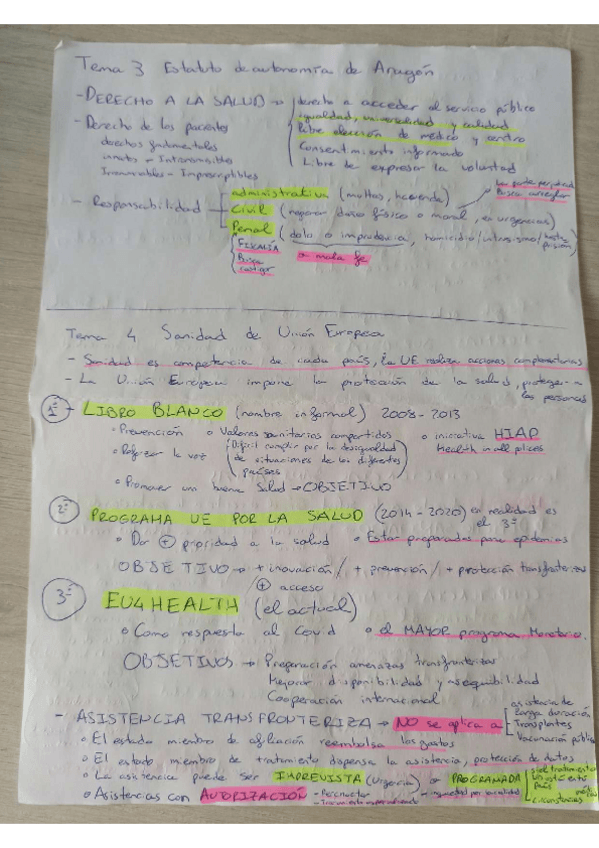 Tema 3 Estatuto de autonomía de Aragón
- DERECHO A LA SALUD → derecho a acceder al servicio público
igualdad, universalidad y calidad
- Derecho de los pacientes libre elección de médico y centro
derechos fundamentales Consentimiento informado
innatos - Intransmisibles Libre de expresar la voluntad
Irrenunciables - Imprescriptibles
La parte perjudicada
Busca arreglar
- Responsabilidad administrativa (multas, hacienda)
Civil (reparar daño físico o moral, a urgencias)
Penal (dolo o imprudencia, homicidio/intrusismo/
prisión)
FISCALÍA o mala fe
Busca
castigar
Tema 4 Sanidad de Unión Europea
- Sanidad es competencia de cada país, la UE realiza acciones complementarias
- La Unión Europea impone la protección de la salud, protege a
las personas
1º - LIBRO BLANCO (nombre informal) 2008-2013
Prevención o Valores sanitarios compartidos o iniciativa HIAP
Reforzar la voz (Difícil cumplir por la desigualdad Health in all polices
de situaciones de los diferentes
países
Promover una buena Salud → OBJETIVO
2º PROGRAMA UE POR LA SALUD (2014-2020) en realidad es
el 3º
Dar + prioridad a la salud Estar preparados para epidemias
OBJETIVO → + innovación / + prevención / + protección transfronteriza
+ acceso
3º EU4HEALTH (el actual)
Como respuesta al Covid el MAYOR programa Monetario.
OBJETIVOS → Preparación amenazas transfronterizas
Mejorar disponibilidad y asequibilidad
Cooperación internacional
- ASISTENCIA TRANSFRONTERIZA → NO se aplica a asistencia de
larga duración
Transplantes
Vacunación pública
El estado miembro de afiliación reembolsa los gastos
El estado miembro de tratamiento dispensa la asistencia, protección de datos
La asistencia puede ser IMPREVISTA (Urgencia) o PROGRAMADA si el tratamiento
país
circunstancias
Asistencias con AUTORIZACIÓN - Pernoctar